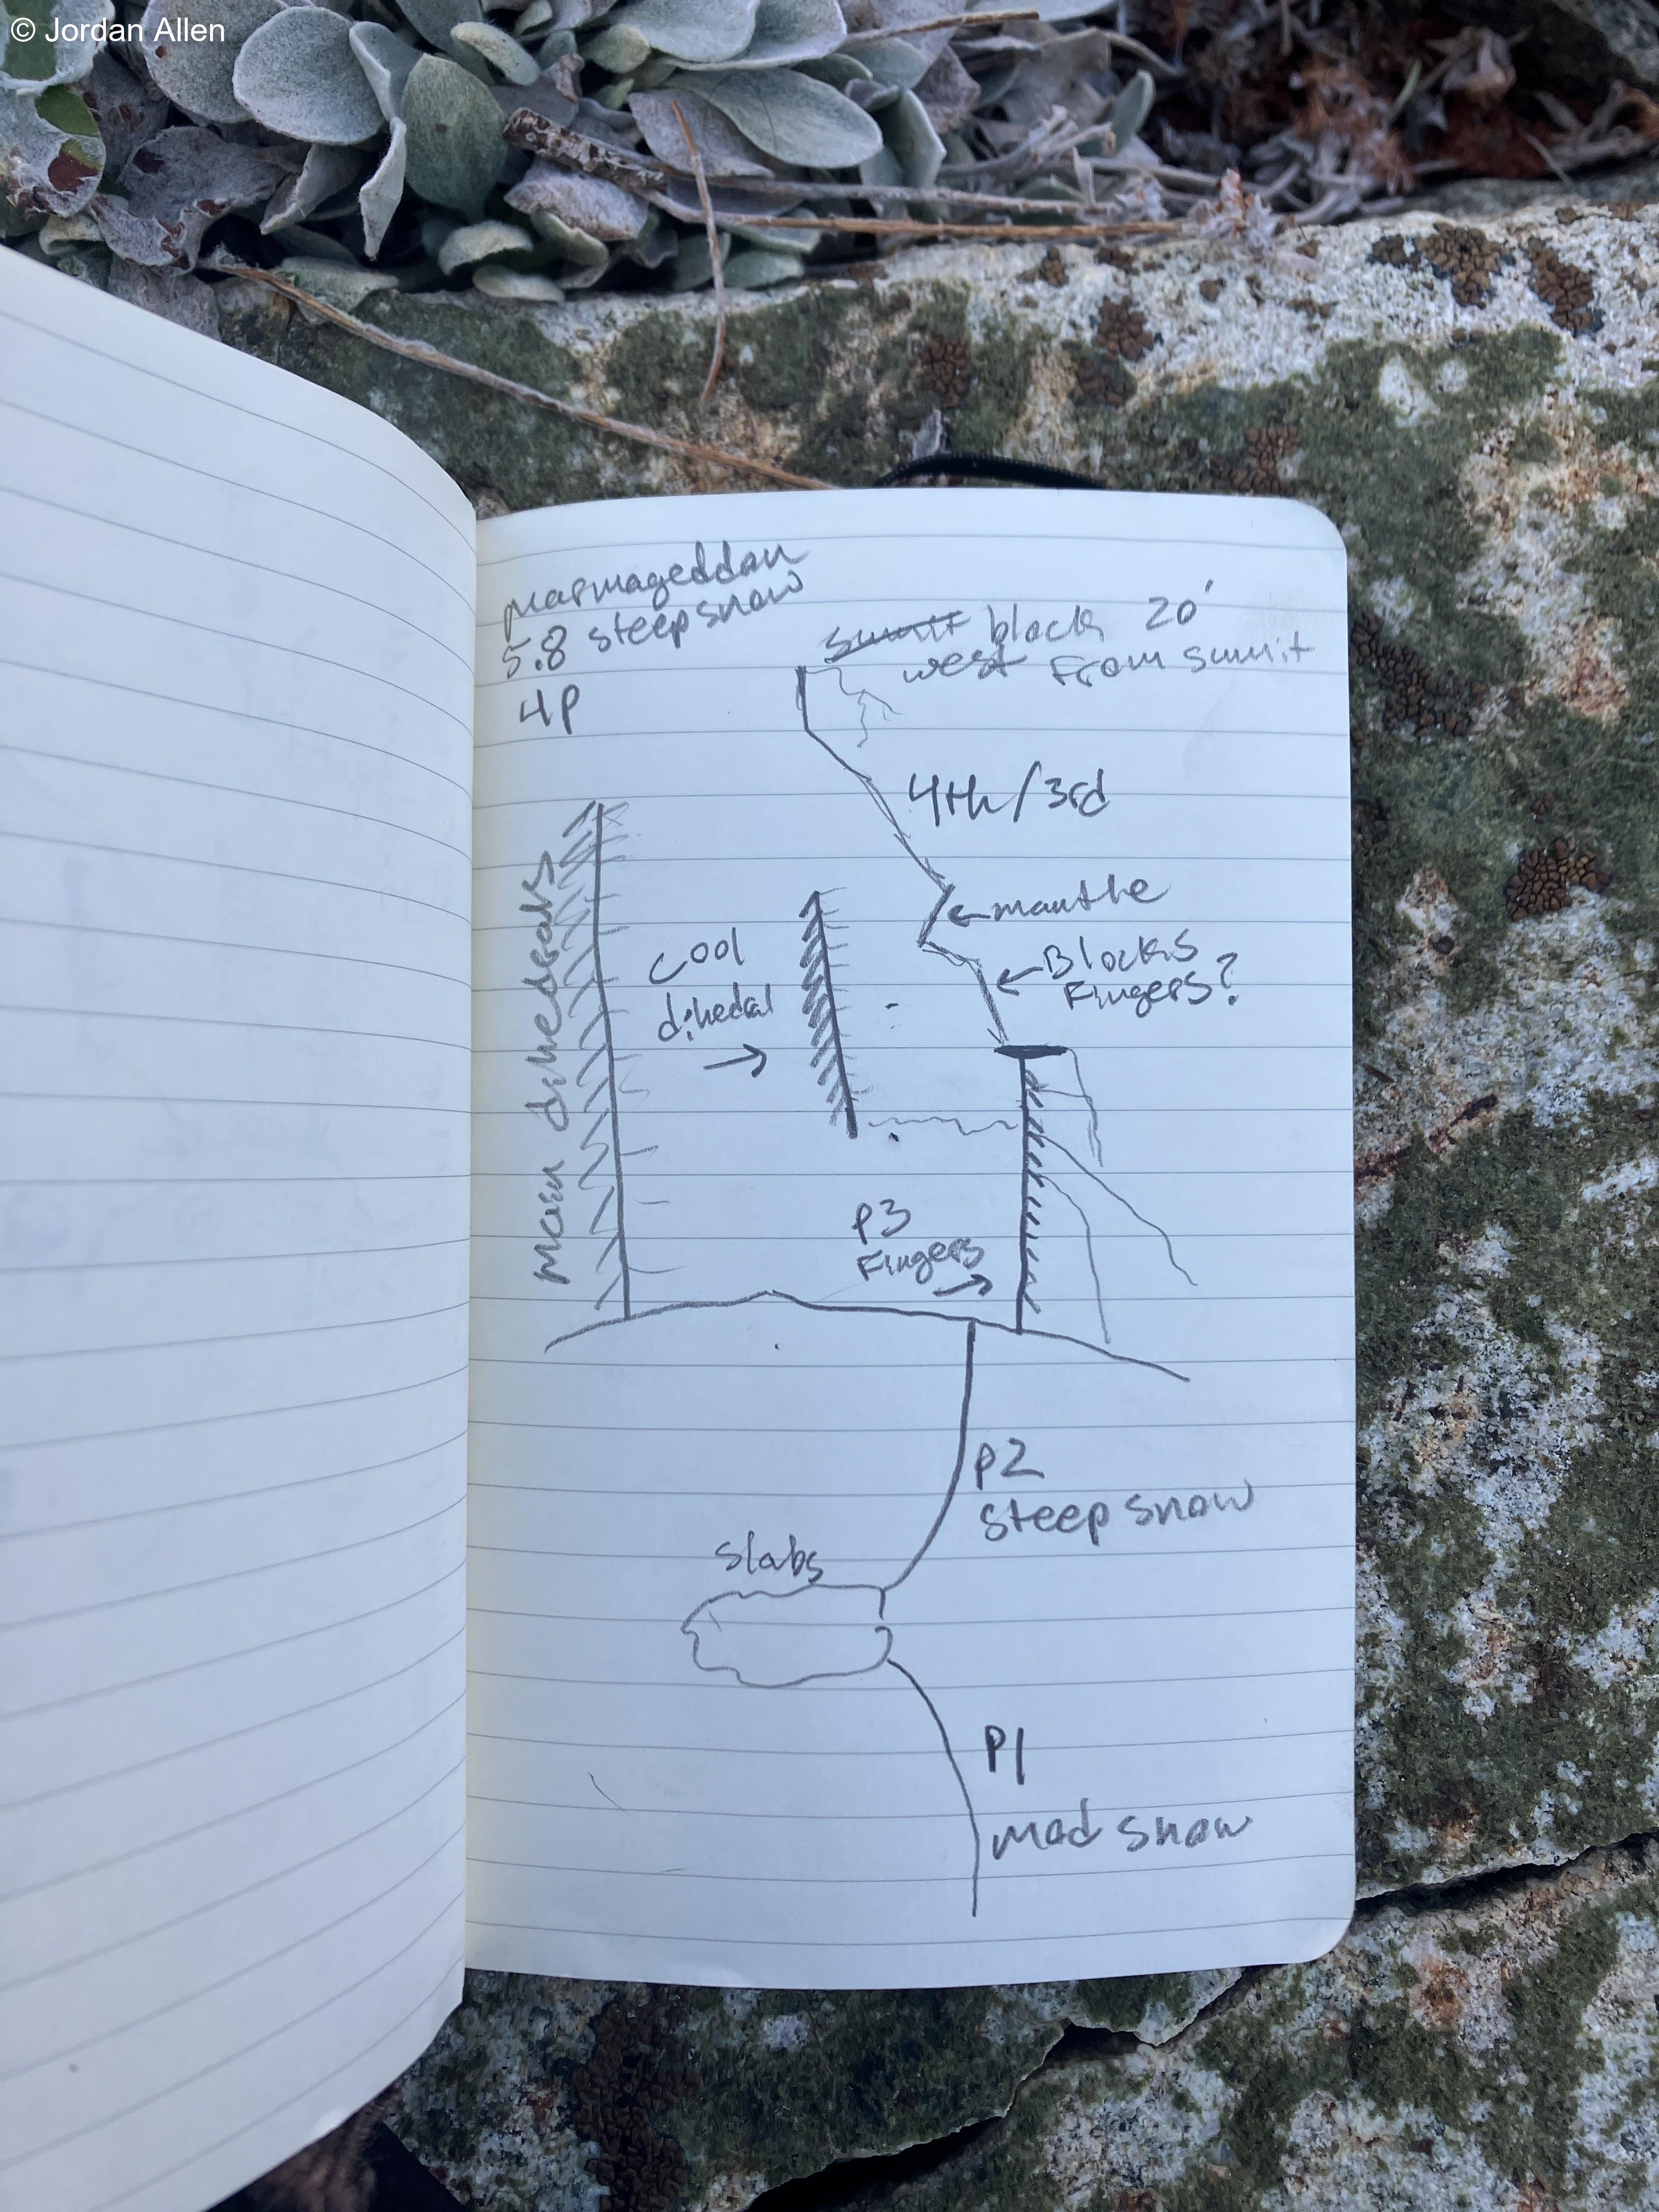 © Jordan Allen
Marmageddan
5.8 steep snow
4P
sumit block 20'
west from sumit
4th/3rd
mantle
Blocks
Fingers?
cool
dihedral
main dihedrals
P3
Fingers
P2
steep snow
slabs
P1
mod snow